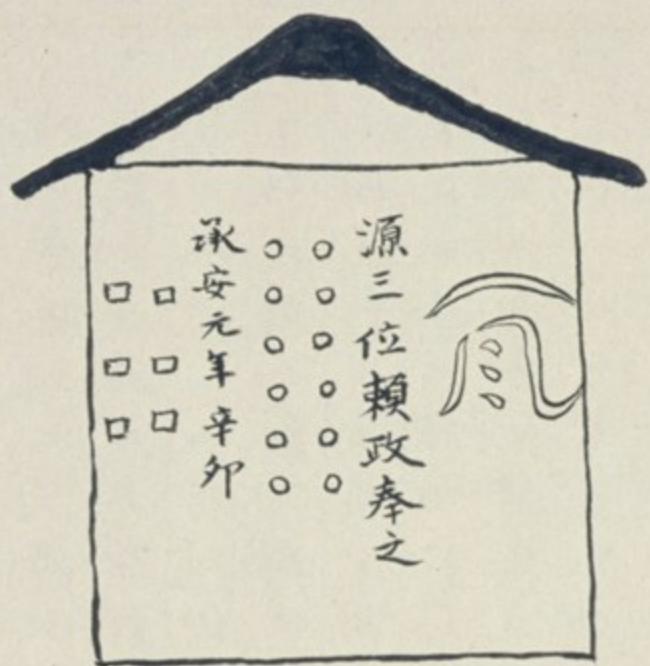 源三位頼政奉之
○○○○○○
○○○○○○
承安元年辛卯
□□□
□□□